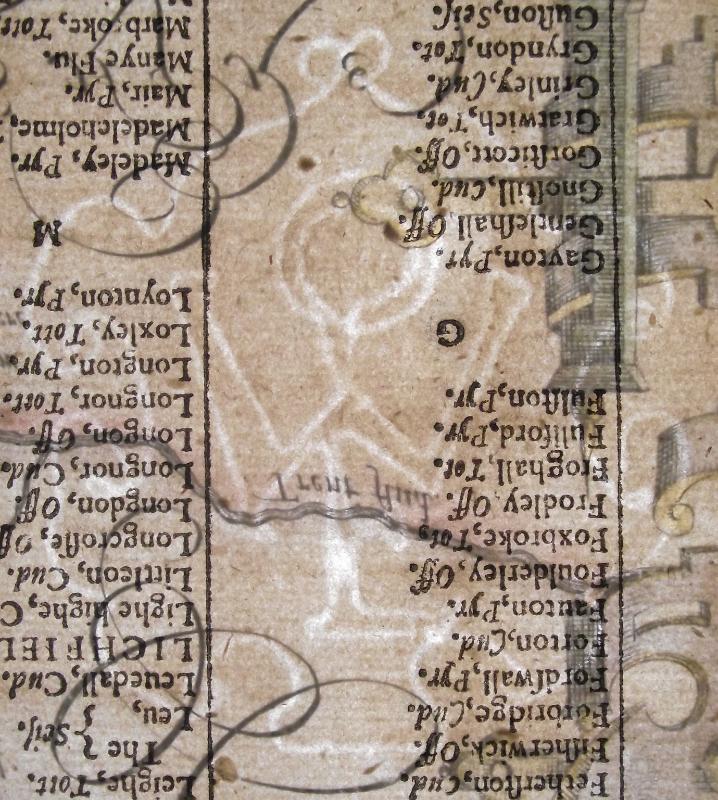 Fetherſton, Cud.
Fiſherwick, Off.
Forbridge, Cud.
Fordſwall, Pyr.
Forton, Cud.
Fauton, Pyr.
Foulderley, Off.
Foxbroke, Tot,
Frodley, Off.
Froghall, Tot.
Fullford, Pyr.
Fulſton, Pyr.
G
Gayton, Pyr.
Gentleſhall, Off.
Gnoſtill, Cud.
Gorſticott, Off.
Gratwich, Tot.
Grinley, Cud.
Gryndon, Tot.
Guſton, Seiſ.
Leighe, Tott.
The } Seiſ.
Leu, }
Leuedall, Cud.
LICHFIEL
Lighe highe, C
Littleton, Cud.
Longcroſſe, Off
Longdon, Off.
Longnor, Cud
Longon, Off.
Longnor, Tott.
Longton, Pyr.
Loxley, Tott.
Loynton, Pyr.
M
Madeley, Pyr.
Madeleholme,
Mair, Pyr.
Manye Flu.
Marbroke, Tott
Trent flud.